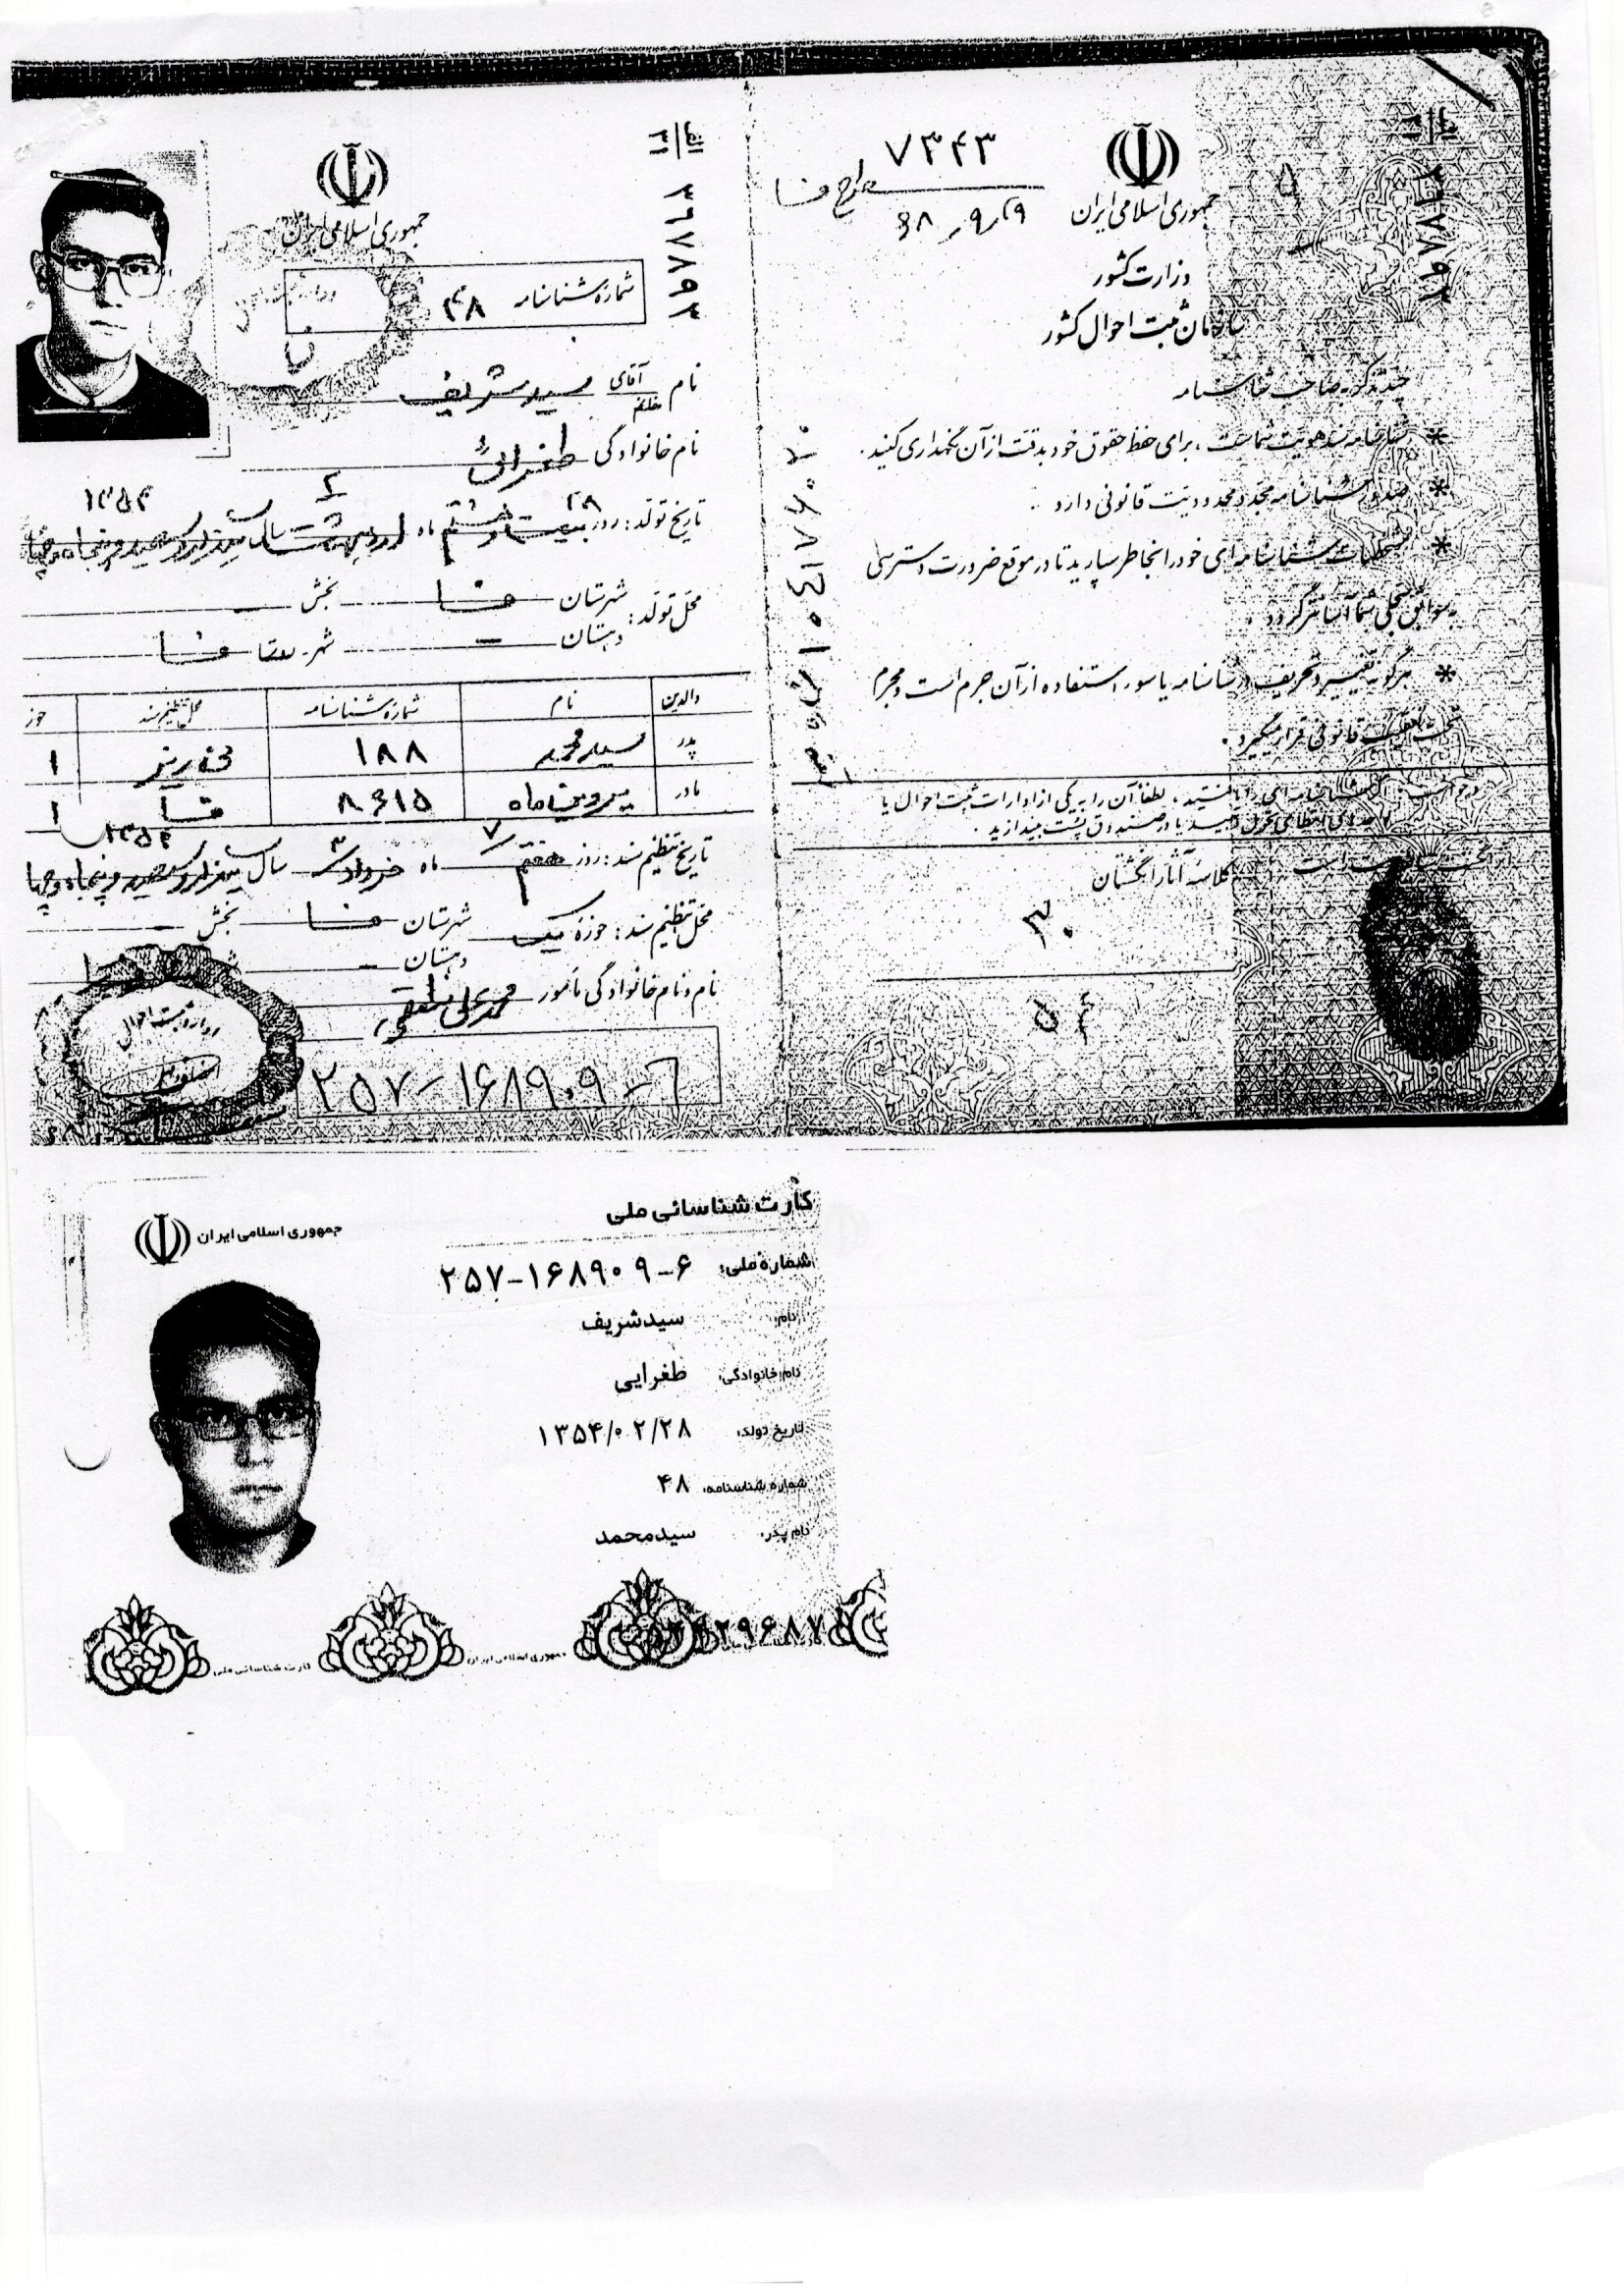 ۷۳۴۳
جمهوری اسلامی ایران
وزارت کشور
سازمان ثبت احوال کشور
چند تذکر به صاحب شناسنامه
* شناسنامه سند هویت شماست ، برای حفظ حقوق خود بدقت از آن نگهداری کنید .
* صدور شناسنامه مجدد محدودیت قانونی دارد .
* مشخصات شناسنامه ای خود را بخاطر بسپارید تا در موقع ضرورت دسترسی
به سوابق سجلی شما آسانتر گردد .
* هرگونه تغییر و تحریف در شناسنامه یا سوء استفاده از آن جرم است و مجرم
تحت تعقیب قانونی قرار میگیرد .
کلاسه آثار انگشتان
۳۰
الف
۳۱
۳۹۷۸۹۳
جمهوری اسلامی ایران
شماره شناسنامه ۴۸
نام آقای سید شریف
خانم
نام خانوادگی طغرائی
۲۸ ۲ ۱۳۵۴
تاریخ تولد : روز بیست و هشتم ماه اردیبهشت سال یکهزار و سیصد و پنجاه و چهار
محل تولد : شهرستان فسا بخش –
دهستان – شهر فسا
والدین نام شماره شناسنامه محل تنظیم سند حوز
پدر سید محمد ۱۸۸ ۱
مادر ۸۶۱۵ فسا ۱
۷ ۳ ۱۳۵۴
تاریخ تنظیم سند : روز هفتم ماه خرداد سال یکهزار و سیصد و پنجاه و چهار
محل تنظیم سند : حوزه یک شهرستان فسا بخش –
دهستان –
نام و نام خانوادگی مأمور محمد علی
۲۵۷-۱۶۸۹۰۹-۶
کارت شناسائی ملی
جمهوری اسلامی ایران
شماره ملی: ۲۵۷-۱۶۸۹۰۹-۶
نام: سیدشریف
نام خانوادگی: طغرایی
تاریخ تولد: ۱۳۵۴/۰۲/۲۸
شماره شناسنامه: ۴۸
نام پدر: سیدمحمد
کارت شناسائی ملی جمهوری اسلامی ایران